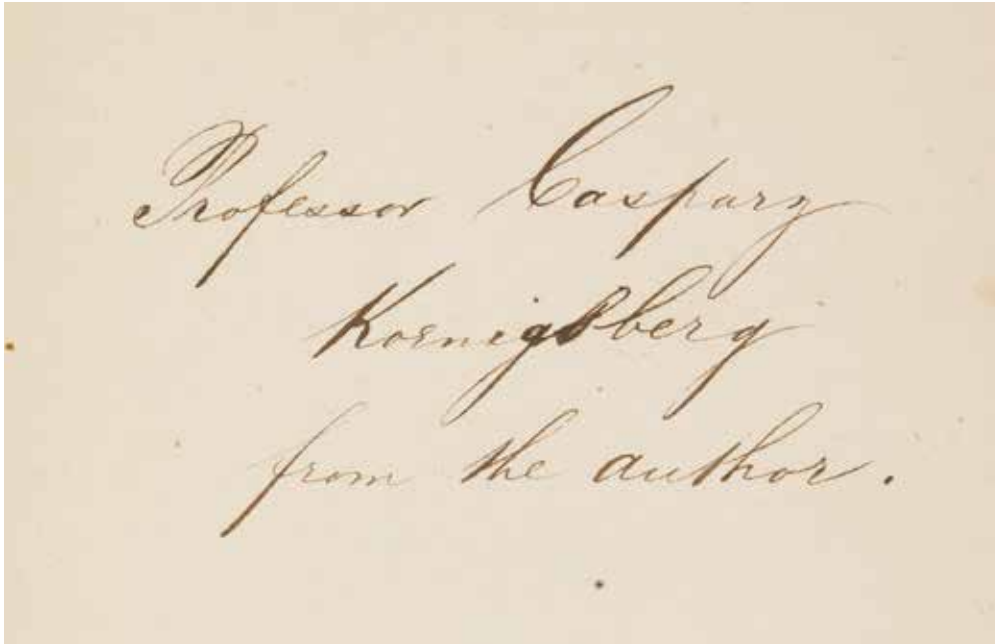 Professor Caspary
Koenigsberg
from the author.